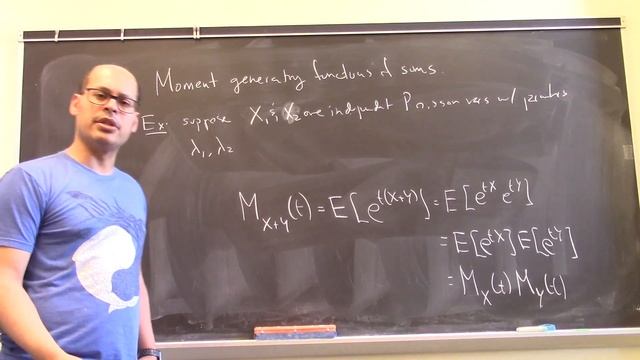 Moment generating functions of sums.
Ex: suppose X₁ & X₂ are independent Poisson vars w/
λ₁, λ₂
M_{X+Y}(t) = E[e^{t(X+Y)}] = E[e^{tX} e^{tY}]
= E[e^{tX}] E[e^{tY}]
= M_X(t) M_Y(t)